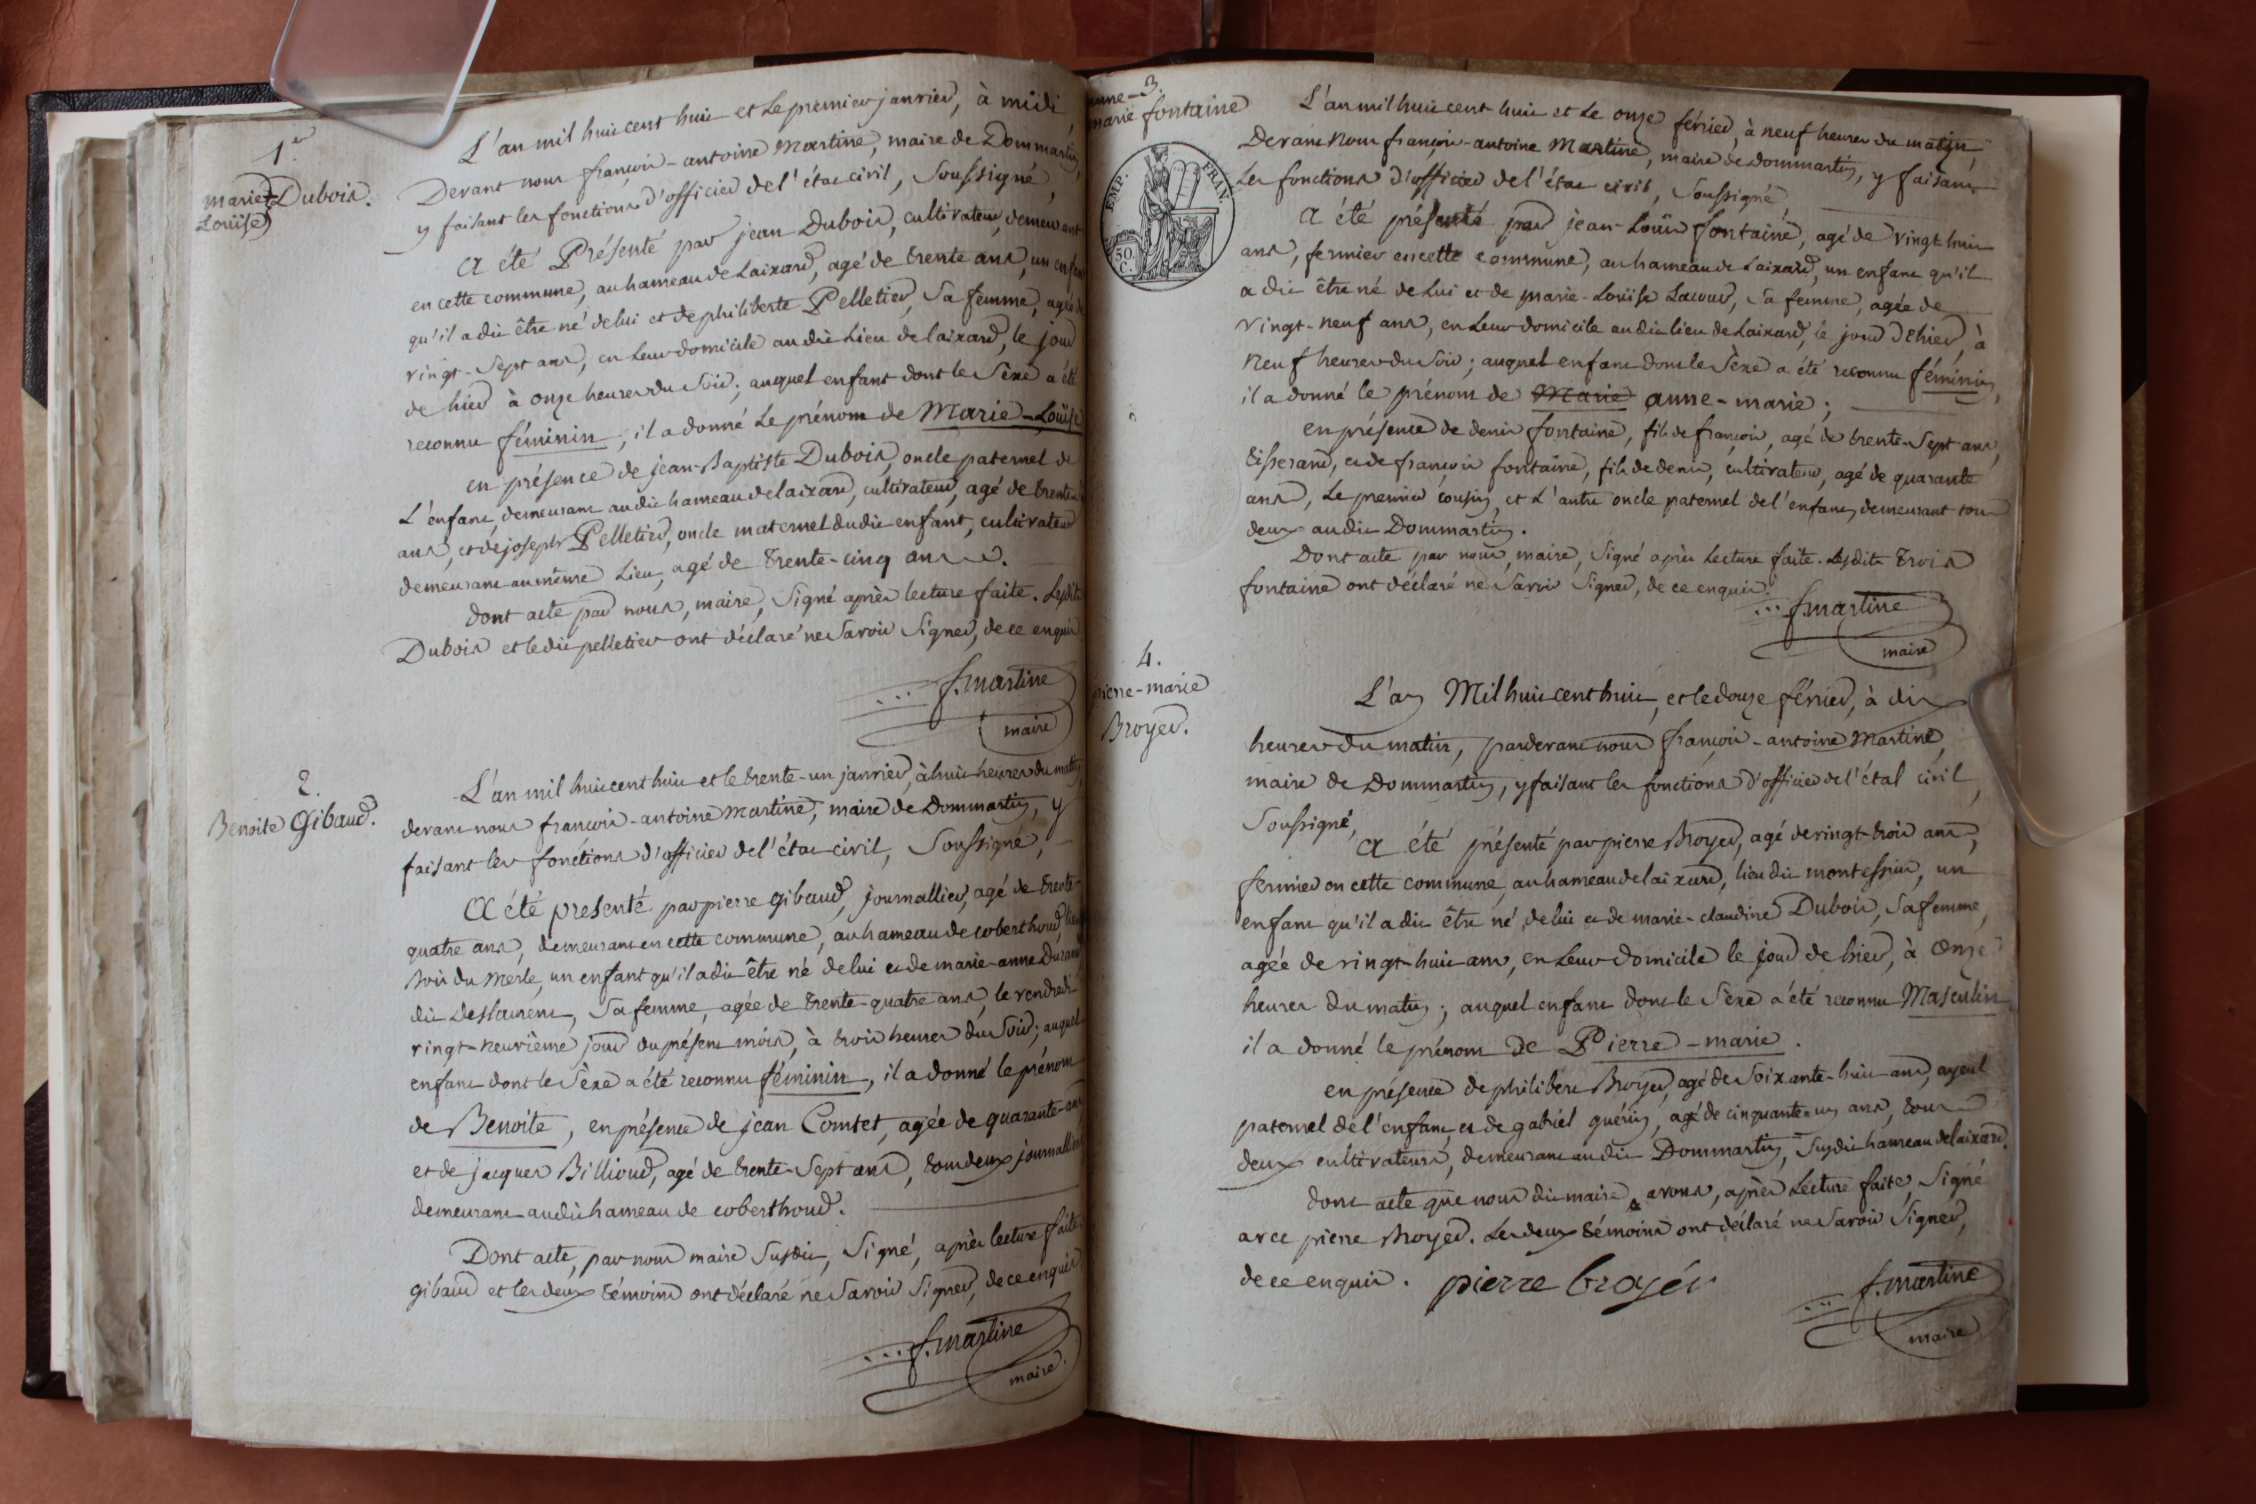 1er
marie Dubois.
Louise
L'an mil huit cent huit et Le premier janvier, à midi,
Devant nous françois-antoine Martine, maire de Dommartin,
y faisant les fonctions d'officier de l'état civil, Soussigné,
A été Présenté par jean Dubois, cultivateur, demeurant
en cette commune, au hameau de Laixard, agé de trente ans, un enfant
qu'il a dit être né de lui et de philiberte Pelletier, Sa femme, agée de
vingt-Sept ans, en Leur domicile audit Lieu de laixard, le jour
de hier à onze heures du Soir; auquel enfant dont le Séxe a été
reconnu féminin, il a donné Le prénom de Marie-Louïse
en présence de jean-Baptiste Dubois, oncle paternel de
L'enfant, demeurant audit hameau de laixard, cultivateur, agé de trente
ans, et de joseph Pelletier, oncle maternel dudit enfant, cultivateur
demeurant au même Lieu, agé de trente-cinq ans.
Dont acte par nous, maire, Signé après lecture faite. Lesdits
Dubois et ledit pelletier ont déclaré ne Savoir Signer, de ce enquis
f. martine
maire
2.
Benoite Gibaud.
L'an mil huit cent huit et le trente-un janvier, à huit heures du matin,
devant nous françois-antoine Martine, maire de Dommartin, y
faisant les fonctions d'officier de l'état civil, Soussigné,
A été présenté par pierre gibaud, journallier, agé de trente-
quatre ans, demeurant en cette commune, au hameau de coberthoud, lieu
Bois du Merle, un enfant qu'il a dit être né de lui et de marie-anne Durand
dit Deslaurent, Sa femme, agée de trente-quatre ans, le vendredi
vingt-neuvième jour du présent mois, à trois heures du Soir; auquel
enfant dont le Séxe a été reconnu féminin, il a donné le prénom
de Benoite, en présence de jean Comtet, agée de quarante-ans
et de jacques Billioud, agé de trente-Sept ans, tous deux journalliers
demeurant audit hameau de coberthoud.
Dont acte, par nous maire Susdit, Signé, après lecture faite
gibaud et les deux témoins ont déclaré ne Savoir Signer, de ce enquis
f. martine
maire.
3.
anne-
marie fontaine
EMP. FRAN.
50
C.
L'an mil huit cent huit et Le onze février, à neuf heures du matin,
Devant Nous françois-antoine Martine, maire de dommartin, y faisant
Les fonctions d'officier de l'état civil, Soussigné,
A été présenté par jean-Loüis fontaine, agé de vingt huit
ans, fermier en cette commune, au hameau de Laixard, un enfant qu'il
a dit être né de Lui et de marie-Loüise Lacour, Sa femme, agée de
vingt-neuf ans, en Leur domicile audit lieu de Laixard, le jour d'hier, à
neuf heures du Soir; auquel enfant dont le Séxe a été reconnu féminin,
il a donné le prénom de Marie anne-marie;
en présence de denis fontaine, fils de françois, agé de trente-Sept ans,
tisserand, et de françois fontaine, fils de denis, cultivateur, agé de quarante
ans, Le premier cousin, et L'autre oncle paternel de l'enfant, demeurant tous
deux audit Dommartin.
Dont acte par nous, maire, Signé après Lecture faite. Lesdits trois
fontaine ont déclaré ne Savoir Signer, de ce enquis.
f. martine
maire
4.
pierre-marie
Broyer.
L'an Mil huit cent huit, et le douze février, à dix
heures du matin, pardevant nous françois-antoine Martine,
maire de Dommartin, y faisant les fonctions d'officier de l'état civil,
Soussigné,
A été présenté par pierre Broyer, agé de vingt-trois ans,
fermier en cette commune, au hameau de laixard, lieu dit montessuit, un
enfant qu'il a dit être né de lui et de marie-claudine Dubois, Sa femme,
agée de vingt-huit ans, en Leur domicile le jour de hier, à Onze
heures du matin; auquel enfant dont le Séxe a été reconnu Masculin
il a donné le prénom de Pierre-marie.
en présence de philibert Broyer, agé de Soixante-huit ans, ayeul
paternel de l'enfant, et de gabriel guérin, agé de cinquante-un ans, tous
deux cultivateurs, demeurant audit Dommartin, Susdit hameau de laixard.
Dont acte que nous dit maire avons, après Lecture faite, Signé
avec pierre Broyer. Les deux témoins ont déclaré ne Savoir Signer,
de ce enquis. pierre broyér
f. martine
maire